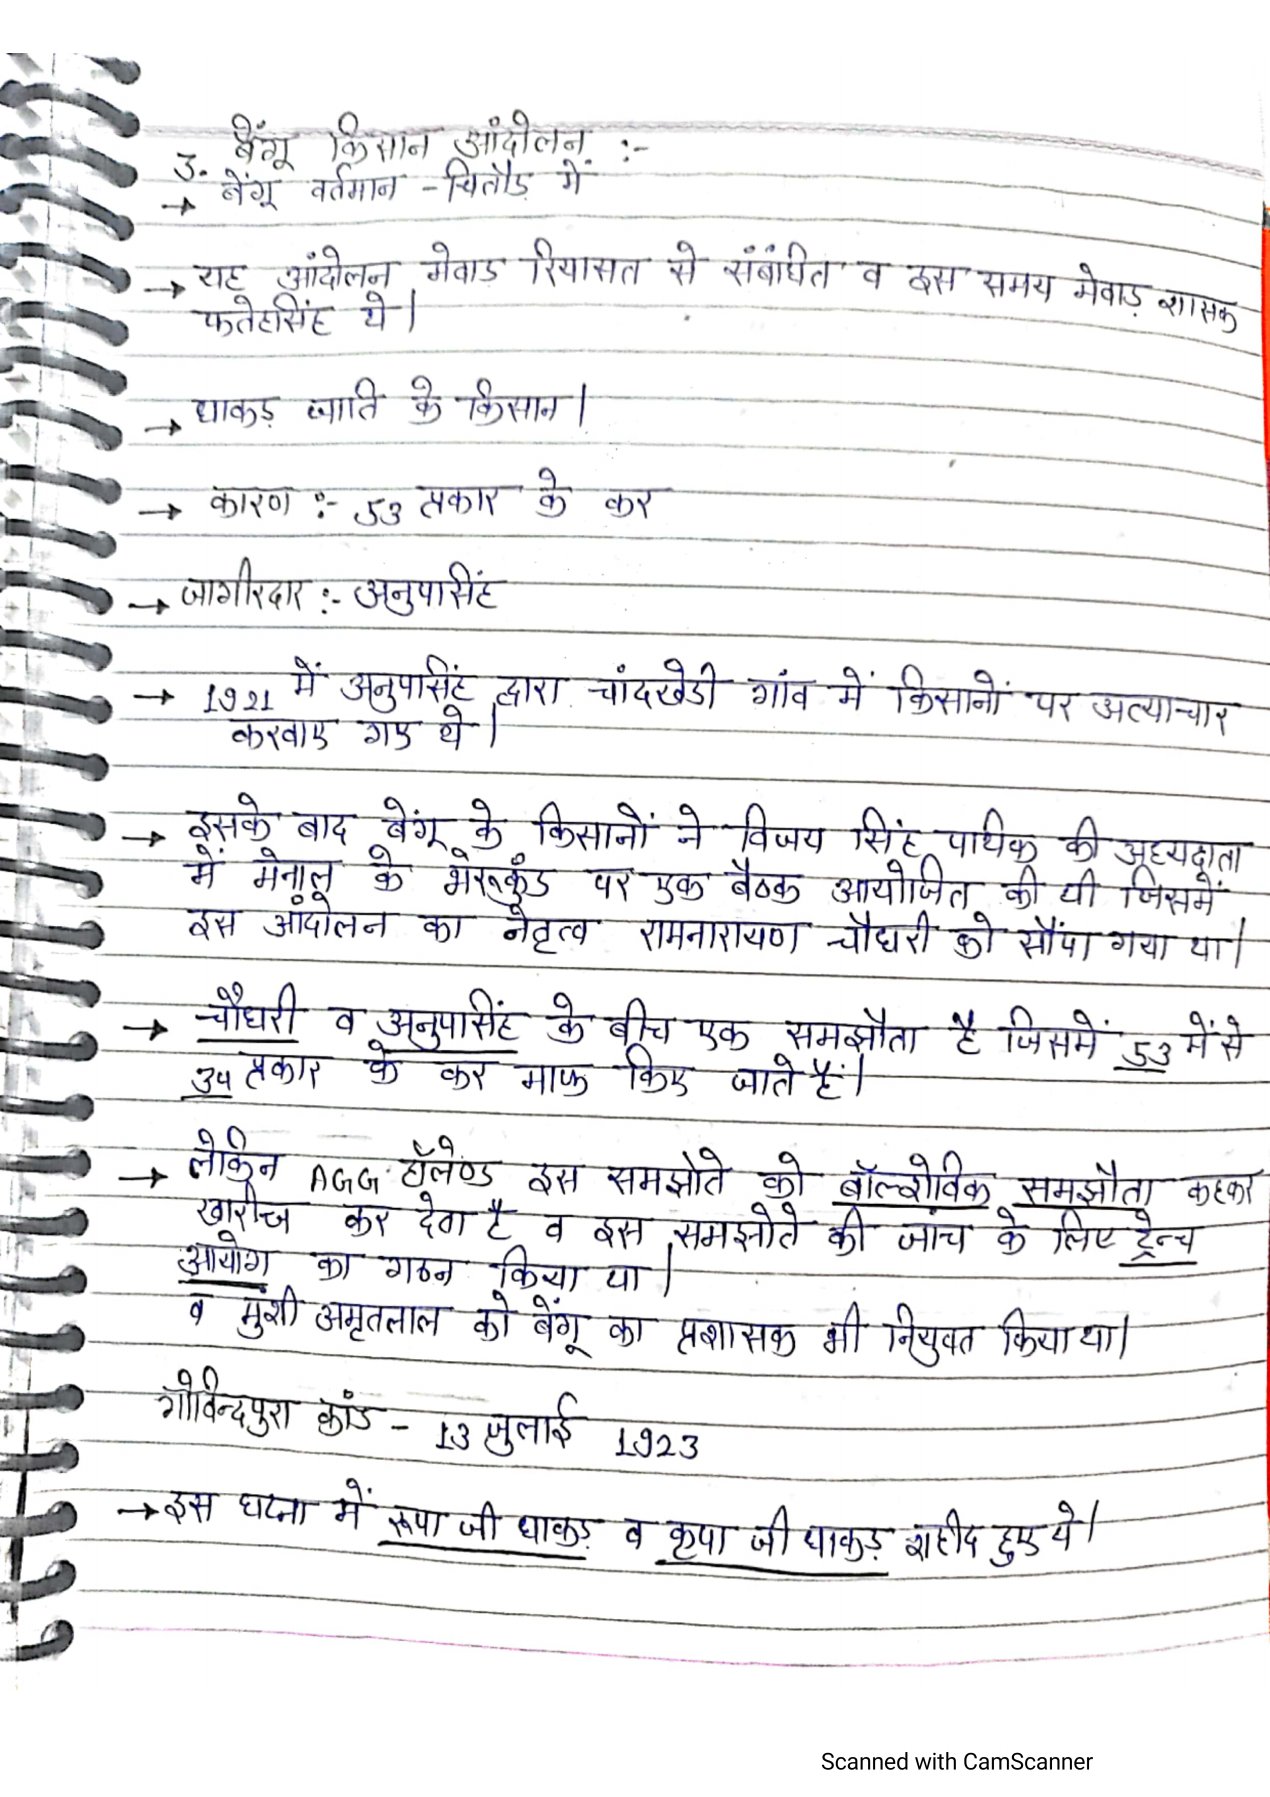 3. बेंगू किसान आंदोलन :-
→ बेंगू वर्तमान - चितौड़ में
→ यह आंदोलन मेवाड़ रियासत से संबंधित व इस समय मेवाड़ शासक
फतेहसिंह थे।
→ धाकड़ जाति के किसान।
→ कारण :- 53 प्रकार के कर
→ जागीरदार :- अनुपसिंह
→ 1921 में अनुपसिंह द्वारा चांदखेडी गांव में किसानों पर अत्याचार
करवाए गए थे।
→ इसके बाद बेंगू के किसानों ने विजय सिंह पथिक की अध्यक्षता
में मेनाल के भैरूकुंड पर एक बैठक आयोजित की थी जिसमें
इस आंदोलन का नेतृत्व रामनारायण चौधरी को सौंपा गया था।
→ चौधरी व अनुपसिंह के बीच एक समझौता है जिसमें 53 में से
34 प्रकार के कर माफ किए जाते हैं।
→ लेकिन AGG हॉलैण्ड इस समझोते को बॉल्शेविक समझौता कहकर
खारीज कर देता है व इस समझोते की जांच के लिए ट्रेन्च
आयोग का गठन किया था।
व मुंशी अमृतलाल को बेंगू का प्रशासक भी नियुक्त किया था।
गोविन्दपुरा कांड - 13 जुलाई 1923
→ इस घटना में रूपा जी धाकड़ व कृपा जी धाकड़ शहीद हुए थे।
Scanned with CamScanner